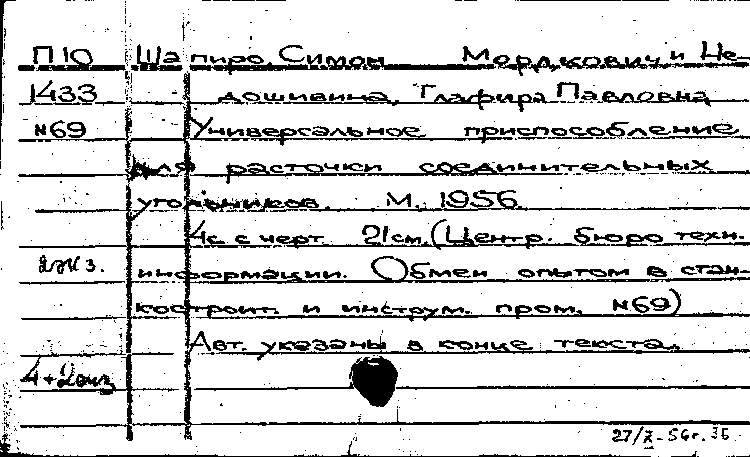 П10 Шапиро, Симон Мордкович и Не-
1433 дошивина, Глафира Павловна
N69 Универсальное приспособление
для расточки соединительных
угольников. М. 1956
4с. с черт. 21см. (Центр. бюро техн.
информации. Обмен опытом в стан-
костроит. и инструм. пром. N69)
Авт. указаны в конце текста.
4+
27/X-56г.